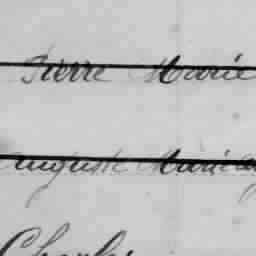 Pierre Marie
Auguste Marie
Charles